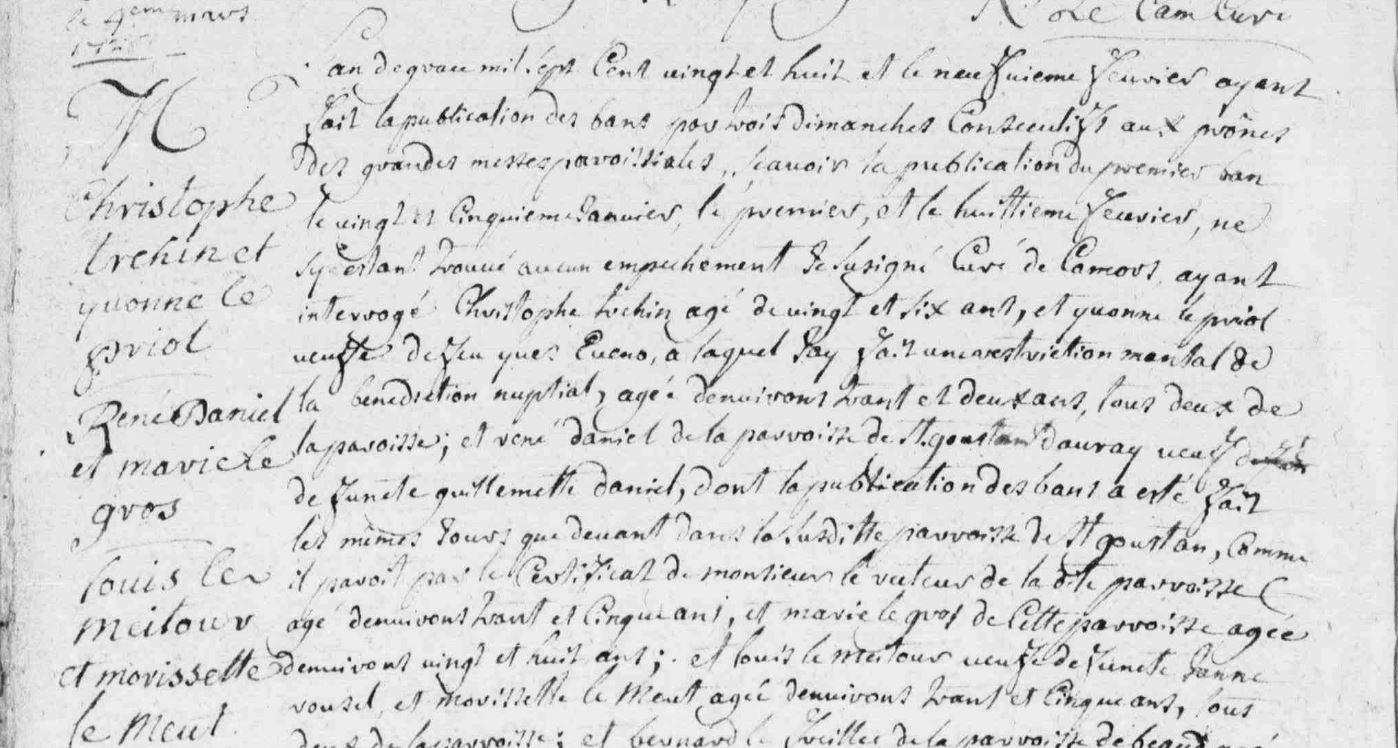 le 9em mars
1728
Le Cam Curé
M
Christophe
trehin et
yvonne le
priol
René Daniel
et marie le
gros
louis le
meitour
et morissette
le Meut
L'an de grace mil sept Cent vingt et huit et le neufvieme feuvrier ayant
fait la publication des bans par trois dimanches Consecutifs aux prônes
des grandes messes paroissiales, scavoir la publication du premier ban
le vingt et Cinquieme Janvier, le premier, et le huittieme feuvrier, ne
s'y estant trouvé aucun empechement Je susigné Curé de Camors, ayant
interrogé Christophe trehin agé de vingt et six ant, et yvonne le priol
veuffe de feu yves Eveno, a laquel J'ay fait une restriction mantal de
la benediction nuptial, agée denvirons trant et deux ans, tous deux de
la paroisse; et rené daniel de la parroisse de st goustan d'auray veuf
de functe guillemette daniel, dont la publication des bans a esté fait
les mêmes Jours que devant dans la susditte parroisse de st goustan, Comme
il paroit par le Certificat de monsieur le recteur de la dite parroisse
agé denvirons trant et Cinque ans, et marie le gros de Cette parroisse agée
denvirons vingt et huit ans; et louis le meitour veuf de functe Janne
rousel, et morissette le Meut agée denvirons trant et Cinque ans, tous
deux de la parroisse; et bernard le de la parroisse de